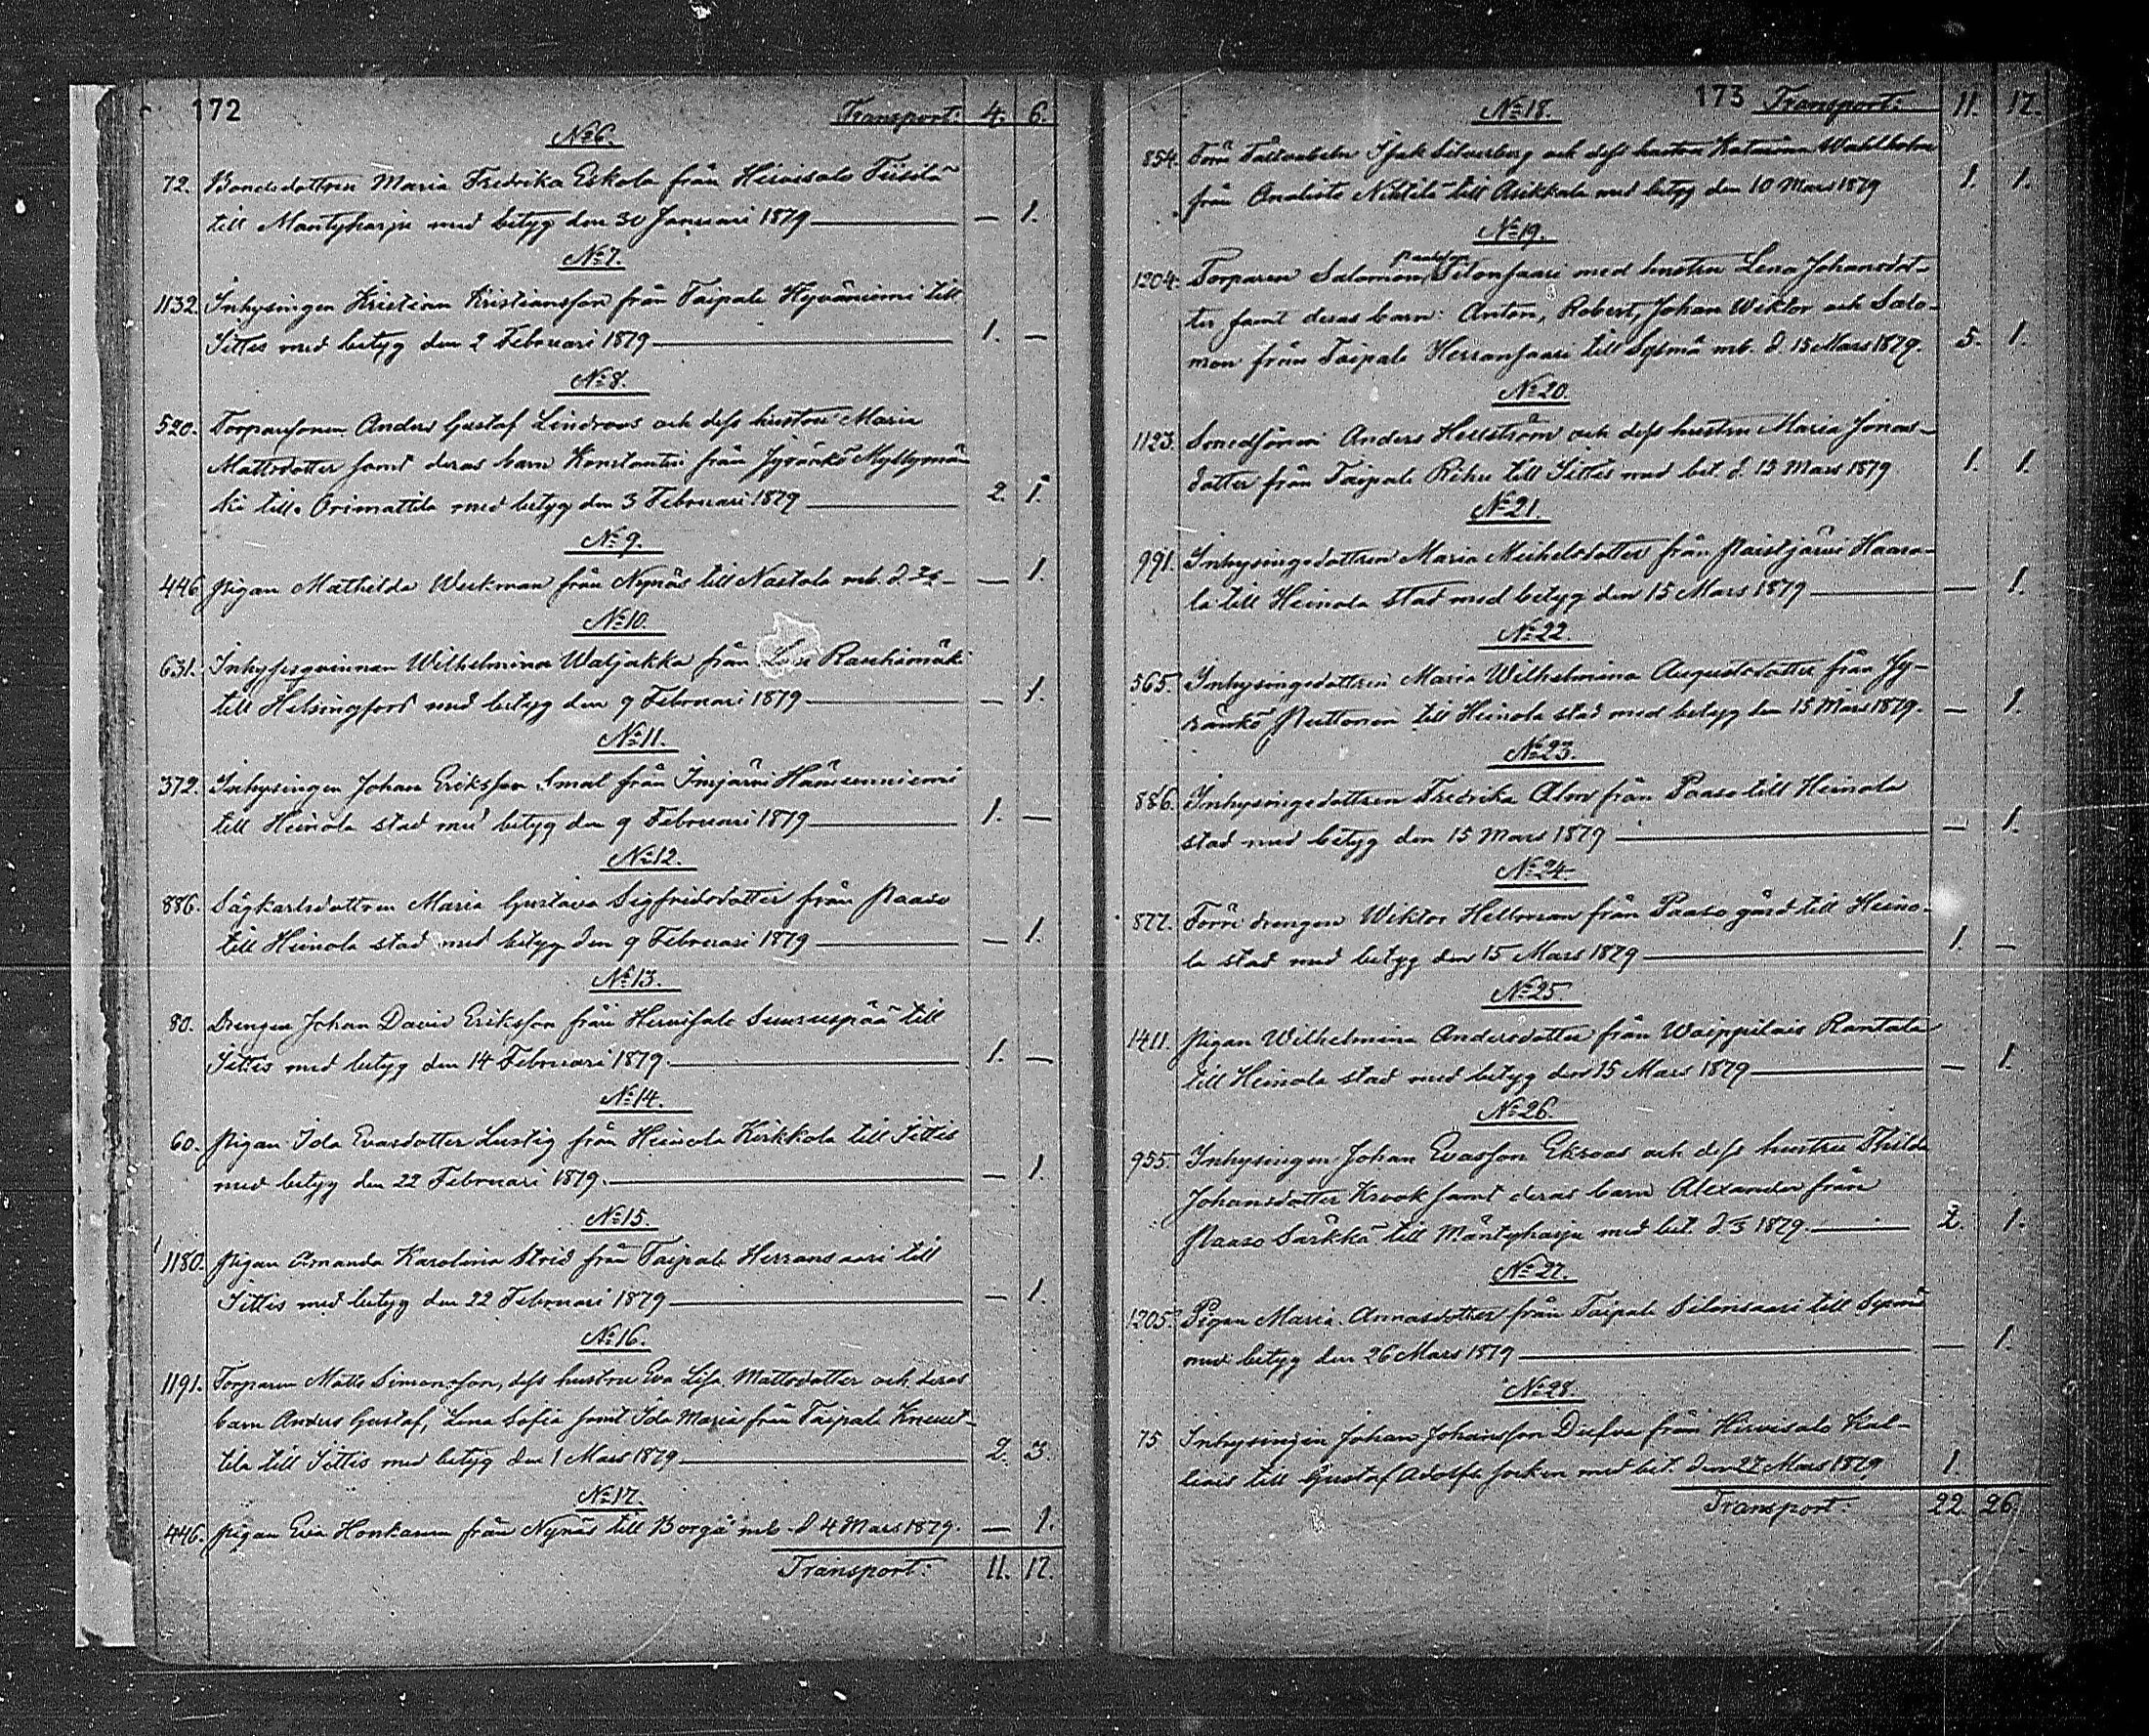 172 Transport: 4. 6.
No 6.
72. Bondedottren Maria Fredrika Eskola från Hirvisalo Tiisilä
till Mäntyharju med betyg den 30 Januari 1879 — 1.
No 7.
1132. Inhysingen Kristian Kristiansson från Taipale Hyväniemi till
Sittis med betyg den 2 Februari 1879 1. —
No 8.
520. Torparsonen Anders Gustaf Lindroos och dess hustru Maria
Mattsdotter samt deras barn Konstantin från Jyränkö Myllymä-
ki till Orimattila med betyg den 3 Februari 1879 2. 1.
No 9.
446. Pigan Mathilda Weckman från Nynäs till Nastola mb. d. — 1.
No 10.
631. Inhysesqvinnan Wilhelmina Waljakka från Rauhamäki
till Helsingfors med betyg den 9 Februari 1879 — 1.
No 11.
372. Inhysingen Johan Eriksson Smal från Imjärvi Hänsenniemi
till Heinola stad med betyg den 9 Februari 1879 1. —
No 12.
886. Sågkarlsdottren Maria Gustava Sigfridsdotter från Paaso
till Heinola stad med betyg den 9 Februari 1879 — 1.
No 13.
80. Drengen Johan David Eriksson från Hirvisalo Suuruspää till
Sittis med betyg den 14 Februari 1879. 1. —
No 14.
60. Pigan Ida Evasdotter Lustig från Heinola Kirkkola till Sittis
med betyg den 22 Februari 1879. — 1.
No 15.
1180. Pigan Amanda Karolina Strid från Taipale Herransaari till
Sittis med betyg den 22 Februari 1879 — 1.
No 16.
1191. Torparen Matts Simonsson, dess hustru Eva Lisa Mattsdotter och deras
barn Anders Gustaf, Lena Sofia samt Ida Maria från Taipale Knuut-
tila till Sittis med betyg den 1 Mars 1879 2. 3.
No 17.
446. Pigan Eva Honkanen från Nynäs till Borgå mb. d 4 Mars 1879. — 1.
Transport: 11. 17.
173 Transport: 11. 17.
No 18.
854. Förre Isak Silverberg och dess hustru Katarina Wahlholm
från Onalinto Nihtilä till Asikkala med betyg den 10 Mars 1879 1. 1.
No 19.
Paulsson
1204. Torparen Salomon Silonsaari med hustru Lena Johansdot-
ter samt deras barn: Anton, Robert, Johan Wiktor och Salo-
mon från Taipale Herransaari till Sysmä mb. d. 15 Mars 1879. 5. 1.
No 20.
1123. Smedsonen Anders Hellström och dess hustru Maria Jonas-
dotter från Taipale Rihu till Sittis med bet. d. 15 Mars 1879 1. 1.
No 21.
991. Inhysingedottren Maria Michelsdotter från Paistjärvi Haaso-
la till Heinola stad med betyg den 15 Mars 1879 — 1.
No 22.
565. Inhysingedottren Maria Wilhelmina Augustsdotter från Jy-
ränkö Puttonen till Heinola stad med betyg den 15 Mars 1879. — 1.
No 23.
886. Inhysingedottren Fredrika Alm från Paaso till Heinola
stad med betyg den 15 Mars 1879 — 1.
No 24.
877. Förre drengen Wiktor Hellman från Paaso gård till Heino-
la stad med betyg den 15 Mars 1879 1. —
No 25.
1411. Pigan Wilhelmina Andersdotter från Waippilais Rantala
till Heinola stad med betyg den 15 Mars 1879 — 1.
No 26.
955. Inhysingen Johan Evasson Ekroos och dess hustru Thilda
Johansdotter Krook samt deras barn Alexander från
Paaso Särkkä till Mäntyharju med bet. d. 1879. 2. 1.
No 27.
1205. Pigan Maria Annasdotter från Taipale Silonsaari till Sysmä
med betyg den 26 Mars 1879 — 1.
No 28.
75 Inhysingen Johan Johansson Dufva från Hirvisalo Kal-
liais till Gustaf Adolfs socken med bet. den 27 Mars 1879 1.
Transport 22. 26.